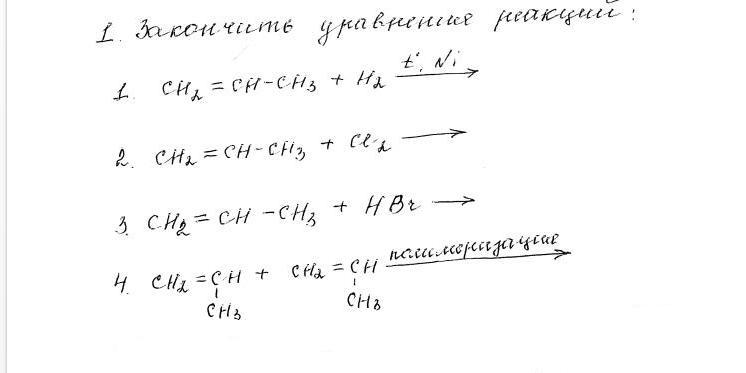 1. Закончить уравнение реакций:
1. CH₂ = CH-CH₃ + H₂ t°, Ni →
2. CH₂ = CH-CH₃ + Cl₂ →
3. CH₂ = CH -CH₃ + HBr →
4. CH₂ = CH + CH₂ = CH полимеризация →
CH₃ CH₃